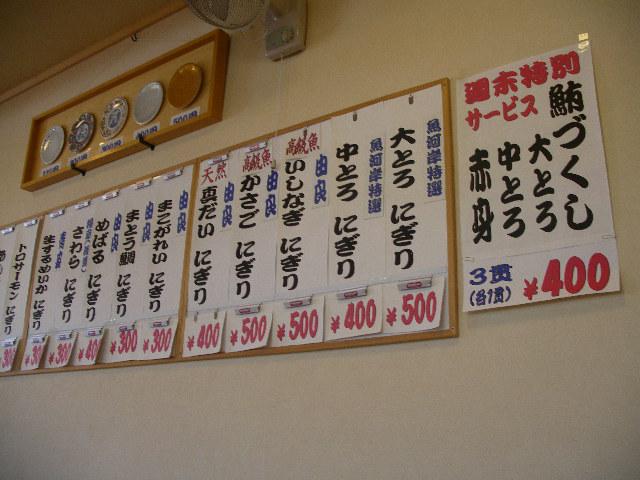 週末特別
サービス
鮪づくし
大とろ
中とろ
赤身
3貫
(各1貫)
¥400
魚河岸特選
大とろ にぎり
¥500
魚河岸特選
中とろ にぎり
¥400
高級魚
由良
いしなぎ にぎり
¥500
高級魚
由良
かさご にぎり
¥500
天然
由良
真だい にぎり
¥400
由良
まこがれい にぎり
¥300
由良
まとう鯛 にぎり
¥300
由良
めばる にぎり
さわら にぎり
¥300
生するめいか にぎり
トロサーモン にぎり
500円